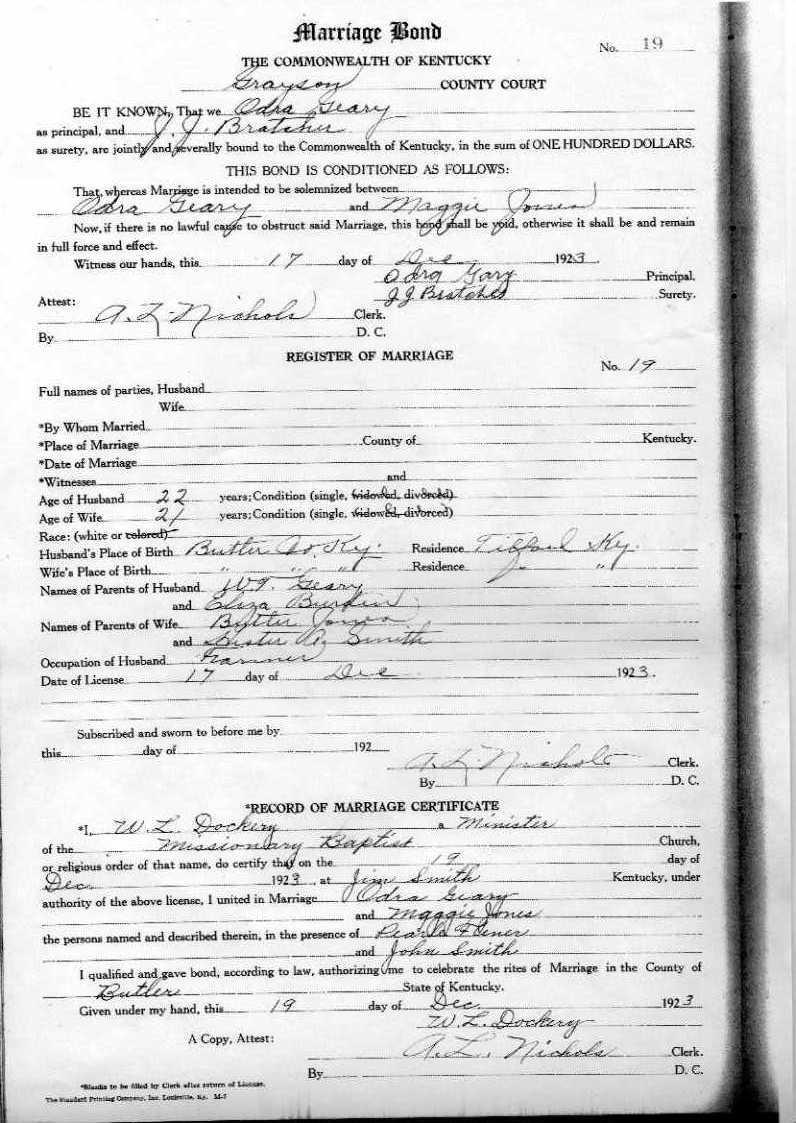 Marriage Bond
No. 19
THE COMMONWEALTH OF KENTUCKY
Grayson COUNTY COURT
BE IT KNOWN, That we Odra Geary
as principal, and J. J. Bratcher
as surety, are jointly and severally bound to the Commonwealth of Kentucky, in the sum of ONE HUNDRED DOLLARS.
THIS BOND IS CONDITIONED AS FOLLOWS:
That, whereas Marriage is intended to be solemnized between
Odra Geary and Maggie Jones
Now, if there is no lawful cause to obstruct said Marriage, this bond shall be void, otherwise it shall be and remain
in full force and effect.
Witness our hands, this 17 day of Dec 1923.
Odra Gary Principal.
Attest: JJ Bratcher Surety.
A. L. Nichols Clerk.
By D. C.
REGISTER OF MARRIAGE
No. 19
Full names of parties, Husband
Wife
*By Whom Married
*Place of Marriage County of Kentucky.
*Date of Marriage
*Witnesses and
Age of Husband 22 years; Condition (single, widowed, divorced)
Age of Wife 21 years; Condition (single, widowed, divorced)
Race: (white or colored)
Husband's Place of Birth Butler Co. Ky. Residence Ky.
Wife's Place of Birth " " " Residence " "
Names of Parents of Husband W.T. Geary
and Eliza
Names of Parents of Wife Butler Jones
and A. Smith
Occupation of Husband Farmer
Date of License 17 day of Dec 1923.
Subscribed and sworn to before me by
this day of 192
A. L. Nichols Clerk.
By D. C.
*RECORD OF MARRIAGE CERTIFICATE
*I, W. L. Dockery a Minister
of the Missionary Baptist Church,
or religious order of that name, do certify that on the 19 day of
Dec. 1923, at Jim Smith Kentucky, under
authority of the above license, I united in Marriage Odra Geary
and Maggie Jones
the persons named and described therein, in the presence of Pearl
and John Smith
I qualified and gave bond, according to law, authorizing me to celebrate the rites of Marriage in the County of
Butler State of Kentucky.
Given under my hand, this 19 day of Dec. 1923
W. L. Dockery
A Copy, Attest:
A. L. Nichols Clerk.
By D. C.
*Blanks to be filled by Clerk after return of License.
The Standard Printing Company, Inc. Louisville, Ky. M-7